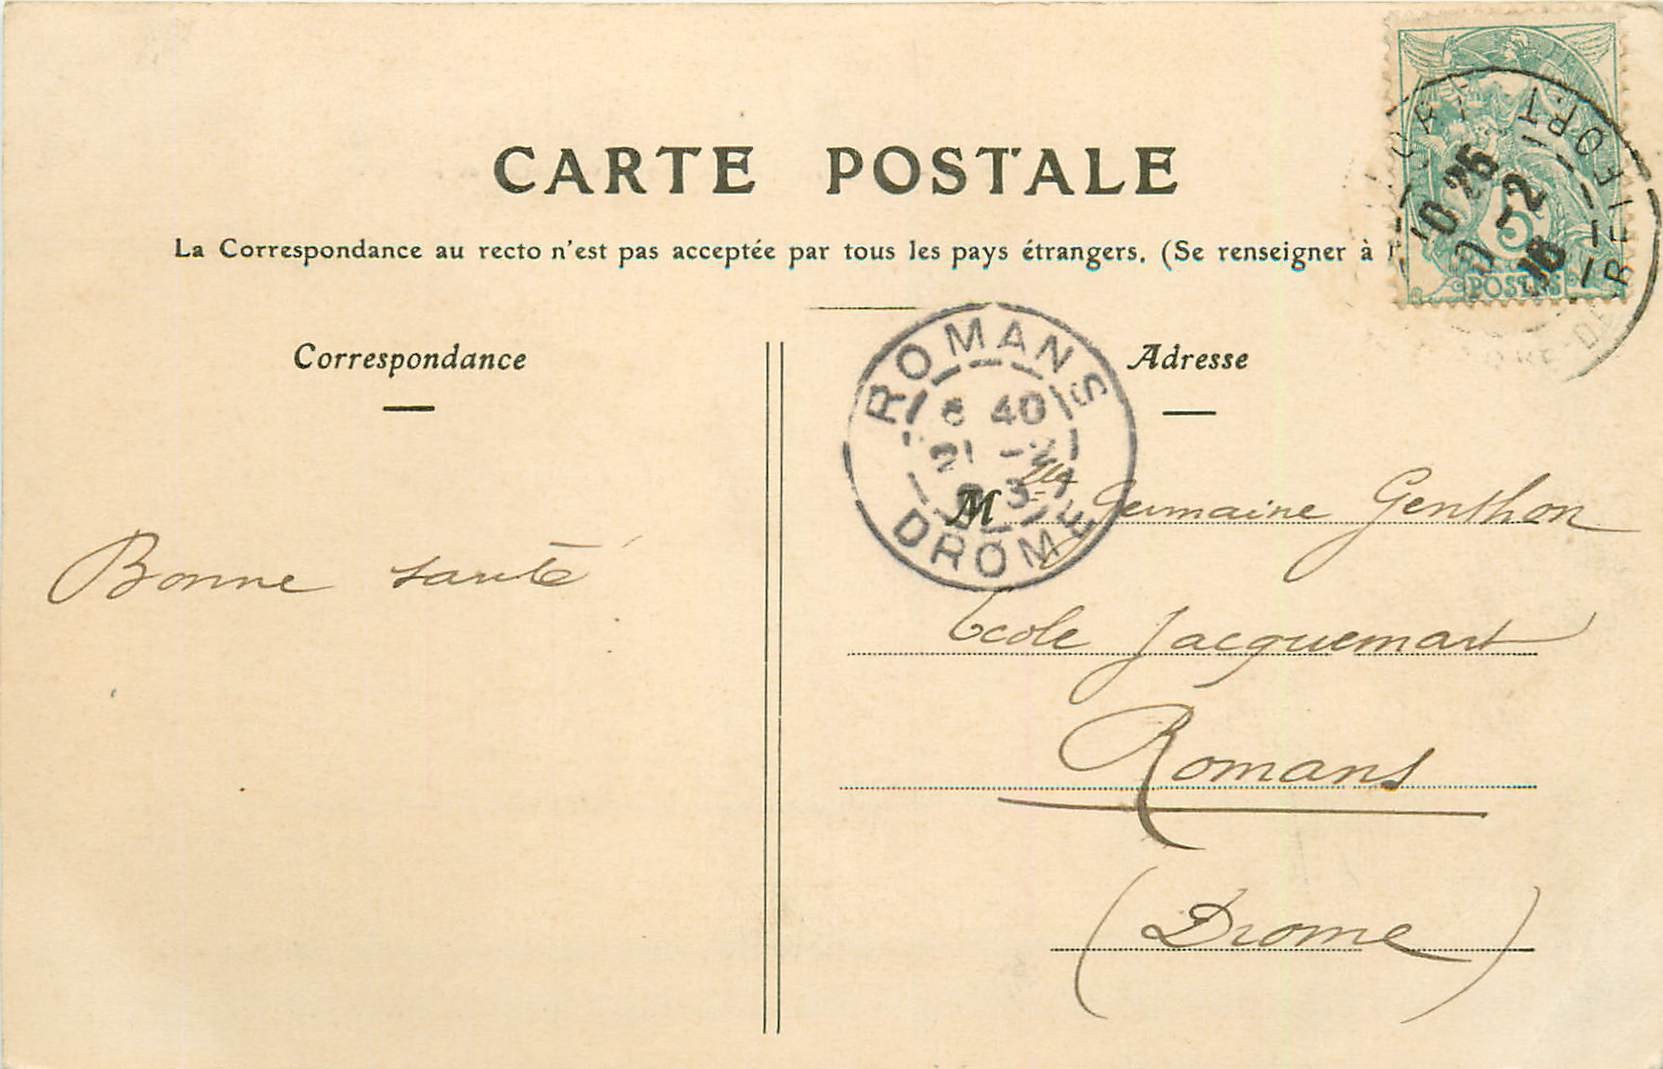 CARTE POSTALE
La Correspondance au recto n'est pas acceptée par tous les pays étrangers. (Se renseigner à l'
Correspondance
Adresse
ROMANS
6 40
21 -2
DROME
10 25
-2
BELFORT
5
POSTES
Mlle Germaine Genthon
Ecole Jacquemart
Romans
(Drome)
Bonne santé